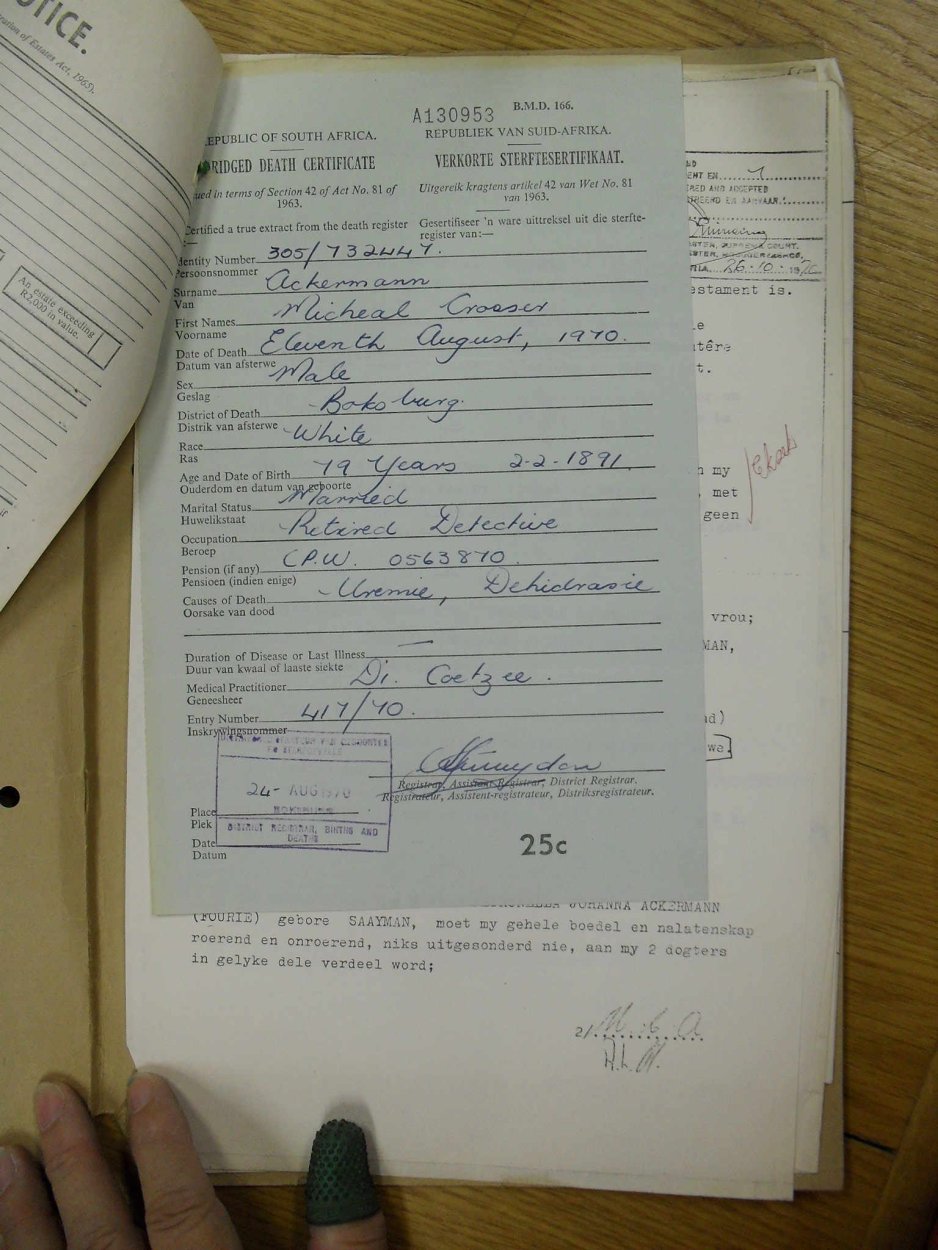 OTICE.
ration of Estates Act, 1965).
An estate exceeding
R2,000 in value.
if
A130953 B.M.D. 166.
EPUBLIC OF SOUTH AFRICA. REPUBLIEK VAN SUID-AFRIKA.
RIDGED DEATH CERTIFICATE VERKORTE STERFTESERTIFIKAAT.
ued in terms of Section 42 of Act No. 81 of 1963. Uitgereik kragtens artikel 42 van Wet No. 81 van 1963.
Certified a true extract from the death register :— Gesertifiseer 'n ware uittreksel uit die sterfte-register van:—
Identity Number 305/732447.
Persoonsnommer
Surname Ackermann
Van
First Names Micheal Crosser
Voorname
Date of Death Eleventh August, 1970.
Datum van afsterwe
Sex Male
Geslag
District of Death Boksburg.
Distrik van afsterwe
Race White
Ras
Age and Date of Birth 79 Years 2-2-1891.
Ouderdom en datum van geboorte
Marital Status Married
Huwelikstaat
Occupation Retired Detective
Beroep
Pension (if any) C.P.W. 0563870
Pensioen (indien enige)
Causes of Death Uremie, Dehidrasie
Oorsake van dood
Duration of Disease or Last Illness —
Duur van kwaal of laaste siekte
Medical Practitioner Dr. Coetzee.
Geneesheer
Entry Number 417/70.
Inskrywingsnommer
Registrar, Assistent-Registrar, District Registrar.
Registrateur, Assistent-registrateur, Distriksregistrateur.
24- AUG 1970
BOKSBURG
DISTRICT REGISTRAR, BIRTHS AND
DEATHS
Place
Plek
Date
Datum
25c
ENT EN 1
RED AND ACCEPTED
TREERD EN AANVAAR
26-10-1970
estament is.
le
utêre
t.
n my
, met
geen
vrou;
MAN,
ad)
we
JOHANNA ACKERMANN
(FOURIE) gebore SAAYMAN, moet my gehele boedel en nalatenskap
roerend en onroerend, niks uitgesonderd nie, aan my 2 dogters
in gelyke dele verdeel word;
2/ M. C. A